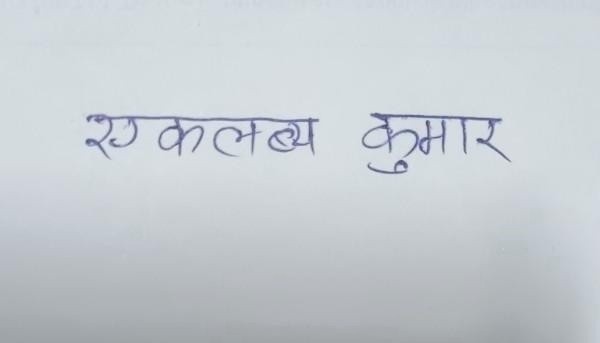 एकलब्य कुमार